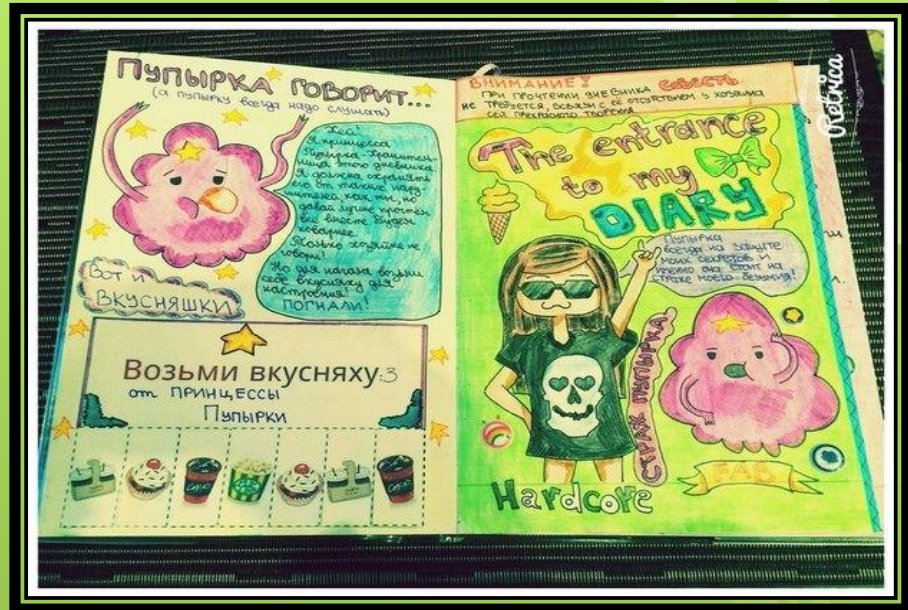 ПУПЫРКА ГОВОРИТ...
(а пупырку всегда надо слушать)
Я принцесса
Пупырка-Хранитель-
ница этого дневника
Я должна охранять
его от таких нару-
шителей как ты, но
давай лучше прочтём
вместе будем
коварнее.
Только хозяйке не
говори!
Но для начала возьми
себе вкусняху для
настроения!
ПОГНАЛИ!
Вот и
ВКУСНЯШКИ
Возьми вкусняху:3
от ПРИНЦЕССЫ
Пупырки
ВНИМАНИЕ!
ПРИ ПРОЧТЕНИИ ДНЕВНИКА СОВЕСТЬ
НЕ ТРЕБУЕТСЯ, В СВЯЗИ С ЕЁ ОТСУТСТВИЕМ У ХОЗЯИНА
СЕЙ ПРЕКРАСНОГО ТВОРЕНИЯ
The entrance
to my
DIARY
Пупырка
всегда на защите
моих секретов и
именно она стоит на
страже моего безумия!
СТРАЖ ПУПЫРКА
FAB
Hardcore
Retrica